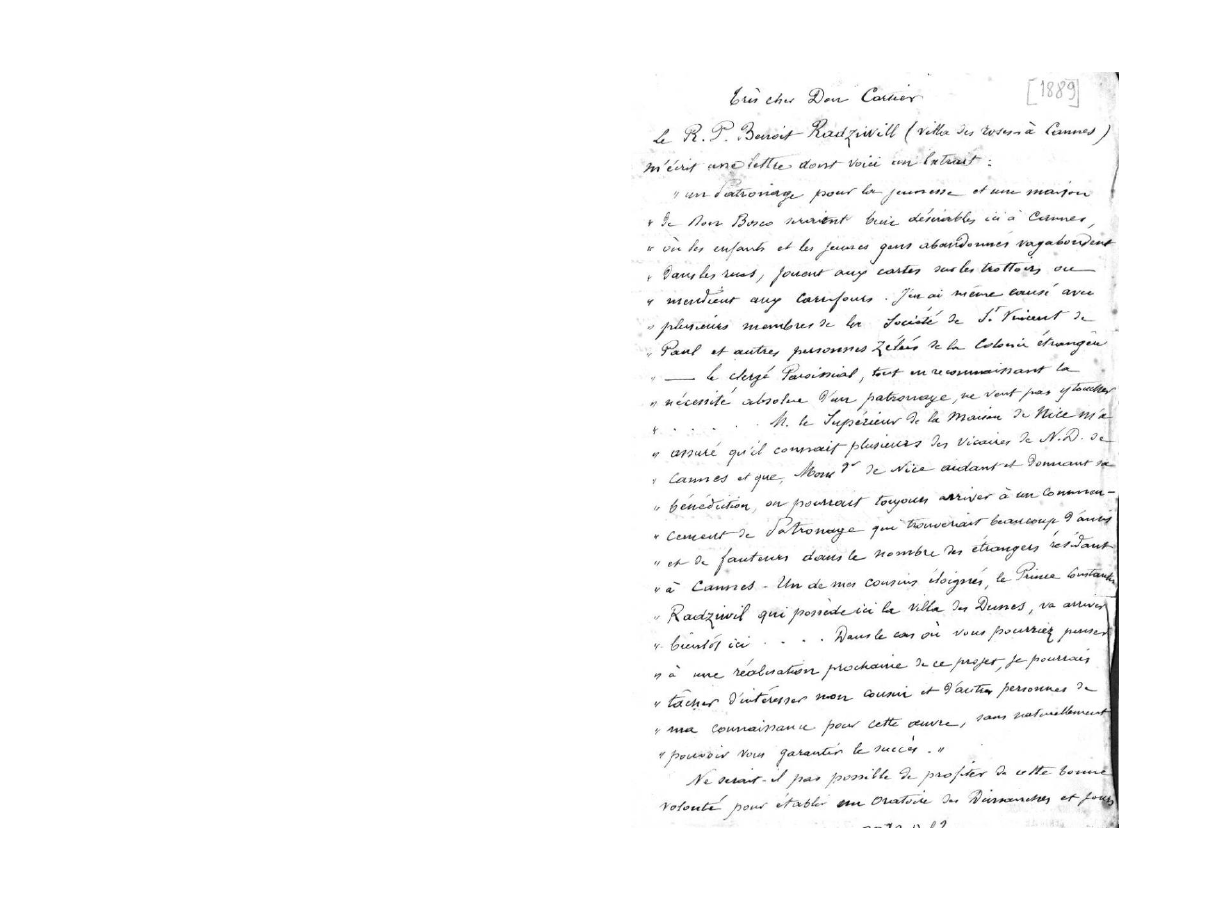 [1889]
Très cher Don Cartier
Le R. P. Benoit Radziwill (villa des roses à Cannes)
m'écrit une lettre dont voici un Extrait :
" un Patronage pour la jeunesse et une maison
" de Don Bosco seraient bien désirables ici à Cannes,
" où les enfants et les jeunes gens abandonnés vagabondent
" dans les rues, jouent aux cartes sur les trottoirs ou
" mendient aux Carrefours. J'en ai même causé avec
" plusieurs membres de la Société de St Vincent de
" Paul et autres personnes zélées de la Colonie étrangère
" — le clergé Paroissial, tout en reconnaissant la
" nécessité absolue d'un patronage, ne veut pas y toucher
" . . . . . . M. le Supérieur de la Maison de Nice m'a
" assuré qu'il connait plusieurs des Vicaires de N.D. de
" Cannes et que, Monsgr de Nice aidant et donnant sa
" bénédiction, on pourrait toujours arriver à un commen-
" cement de Patronage qui trouverait beaucoup d'amis
" et de fauteurs dans le nombre des étrangers résidant
" à Cannes - Un de mes cousins éloignés, le Prince Constantin
" Radziwil qui possède ici la villa des Dunes, va arriver
" bientôt ici . . . . Dans le cas où vous pourriez penser
" à une réalisation prochaine de ce projet, je pourrais
" tâcher d'intéresser mon cousin et d'autres personnes de
" ma connaissance pour cette œuvre, sans naturellement
" pouvoir vous garantir le succès. "
Ne serait-il pas possible de profiter de cette bonne
volonté pour établir un Oratoire des Dimanches et jours